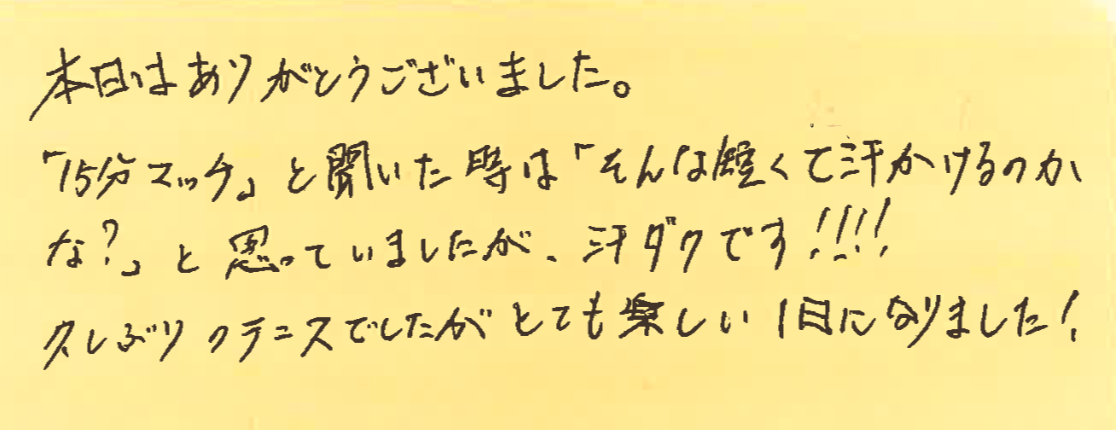 本日はありがとうございました。
「15分マッチ」と聞いた時は「そんな短くて汗かけるのか
な？」と思っていましたが、汗ダクです!!!!
久しぶりのテニスでしたがとても楽しい1日になりました!